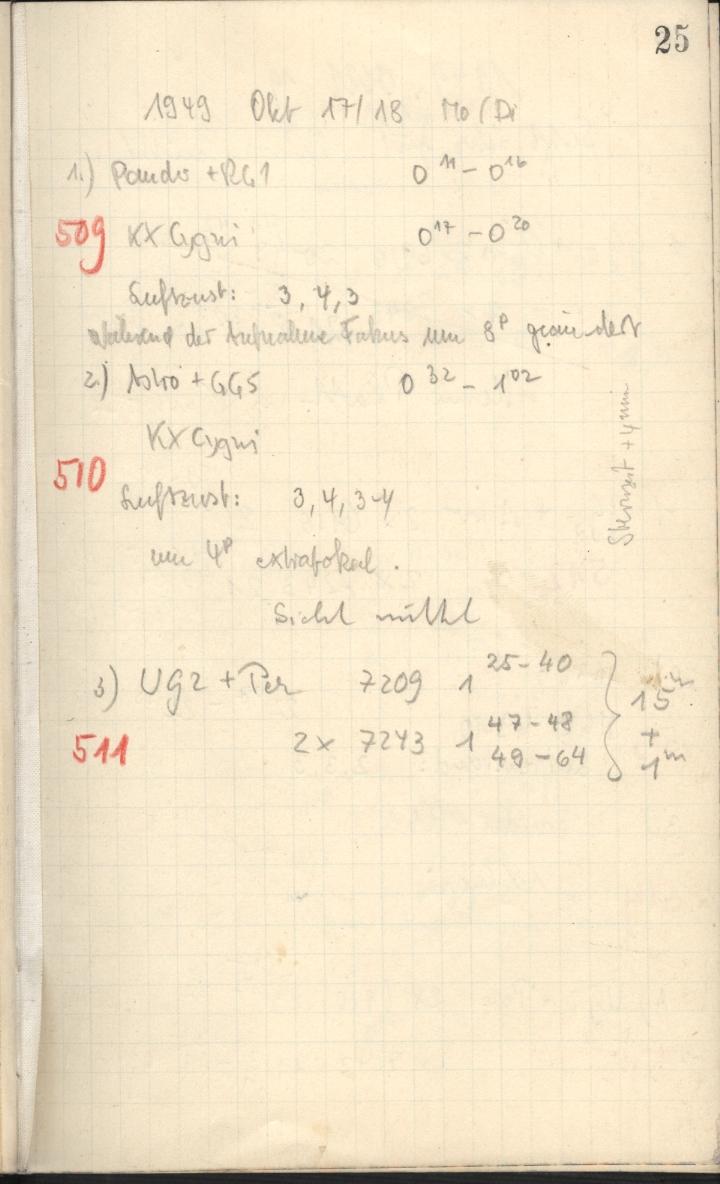 25
1949 Okt 17/18 Mo/Di
1.) Pando + RG1 0 11 - 0 16
509 KX Cygni 0 17 - 0 20
Luftzust: 3, 4, 3
während der Aufnahme Fokus um 8P geändert
2.) Astro + GG5 0 32 - 1 02
KX Cygni
510
Luftzust: 3, 4, 3-4
um 4P extrafokal.
Sternzeit + 4 min
Sicht mittel
3) UG2 + Per 7209 1 25-40
511 2x 7243 1 47-48
49-64
15 m
+
1 m